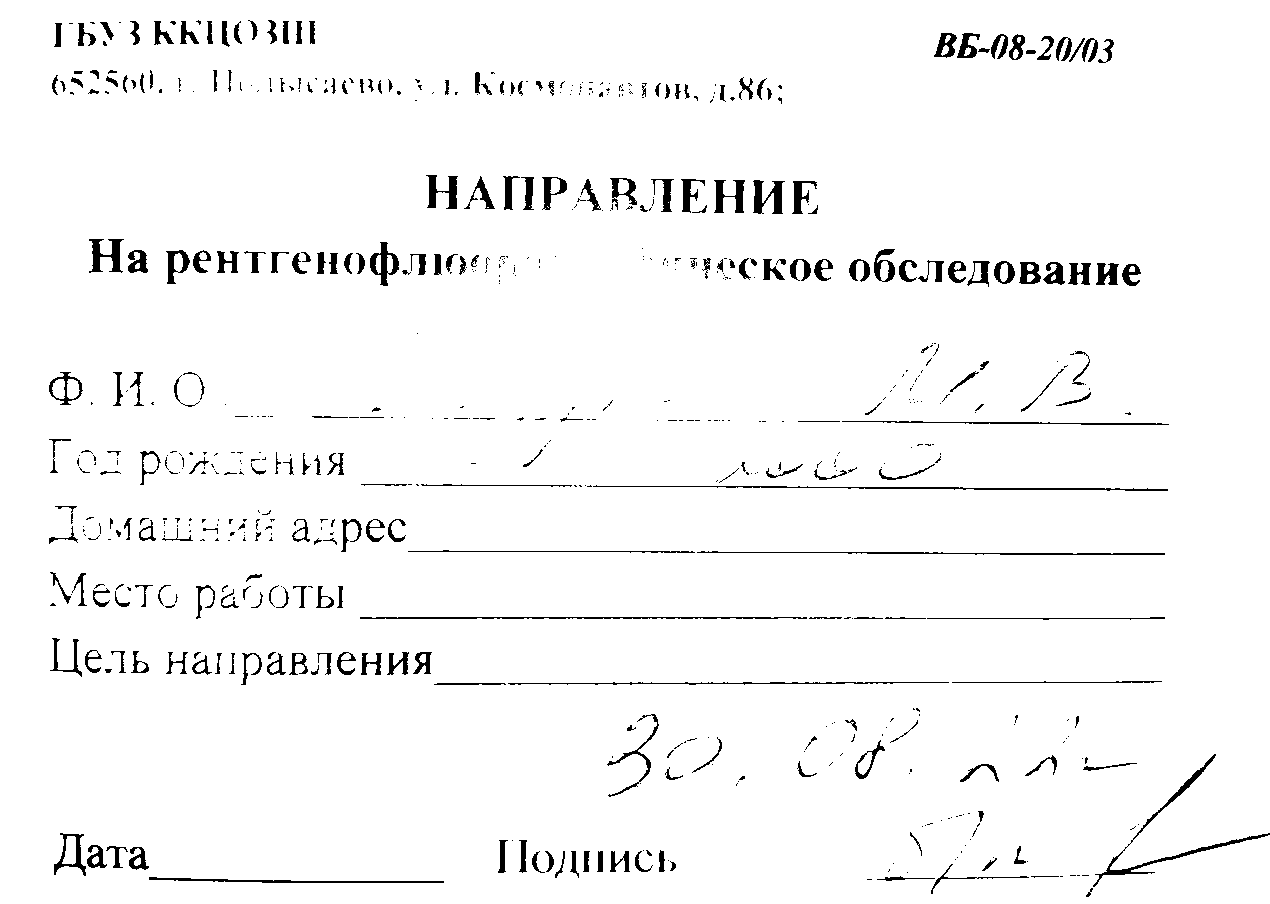 ГБУЗ ККЦОЗШ
ВБ-08-20/03
652560, г. Полысаево, ул. Космонавтов, д.86;
НАПРАВЛЕНИЕ
На рентгенофлюорографическое обследование
Ф. И. О
В.
Год рождения
Домашний адрес
Место работы
Цель направления
30.08.22
Дата Подпись